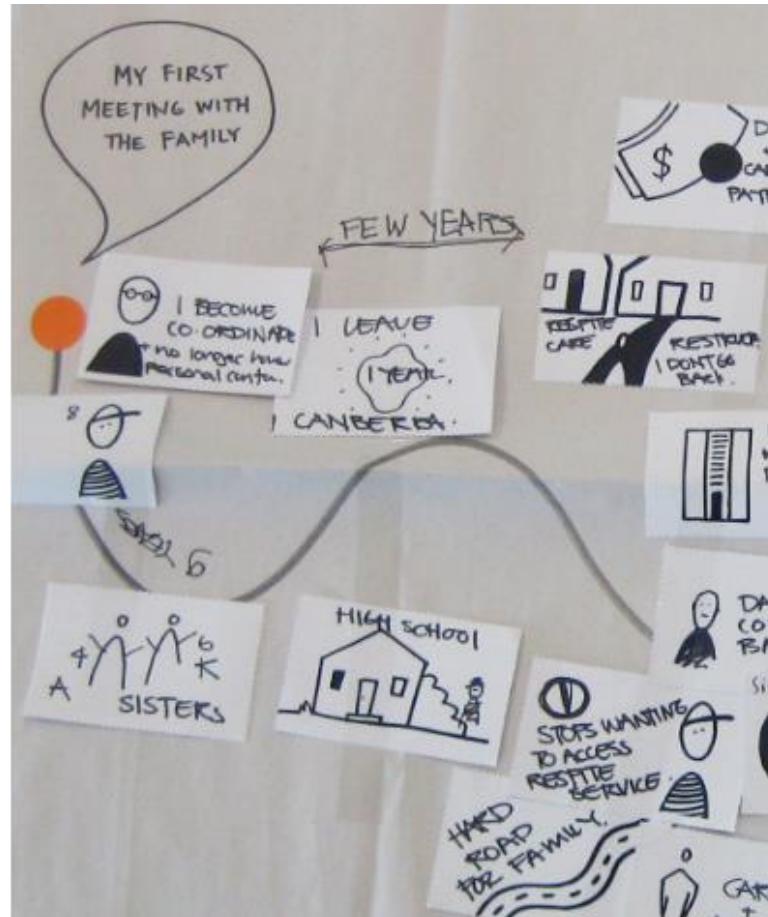 MY FIRST
MEETING WITH
THE FAMILY
FEW YEARS
$
I BECOME
CO-ORDINATE
+ no longer have
Personal conta.
I LEAVE
1 YEAR
CANBERRA.
RESPITE
CARE
I DONT GO
BACK.
8
4
A
6
K
SISTERS
HIGH SCHOOL
STOPS WANTING
TO ACCESS
RESPITE
SERVICE.
HARD
ROAD
FOR FAMILY.
DA
CO
BA
Si
CAR
+